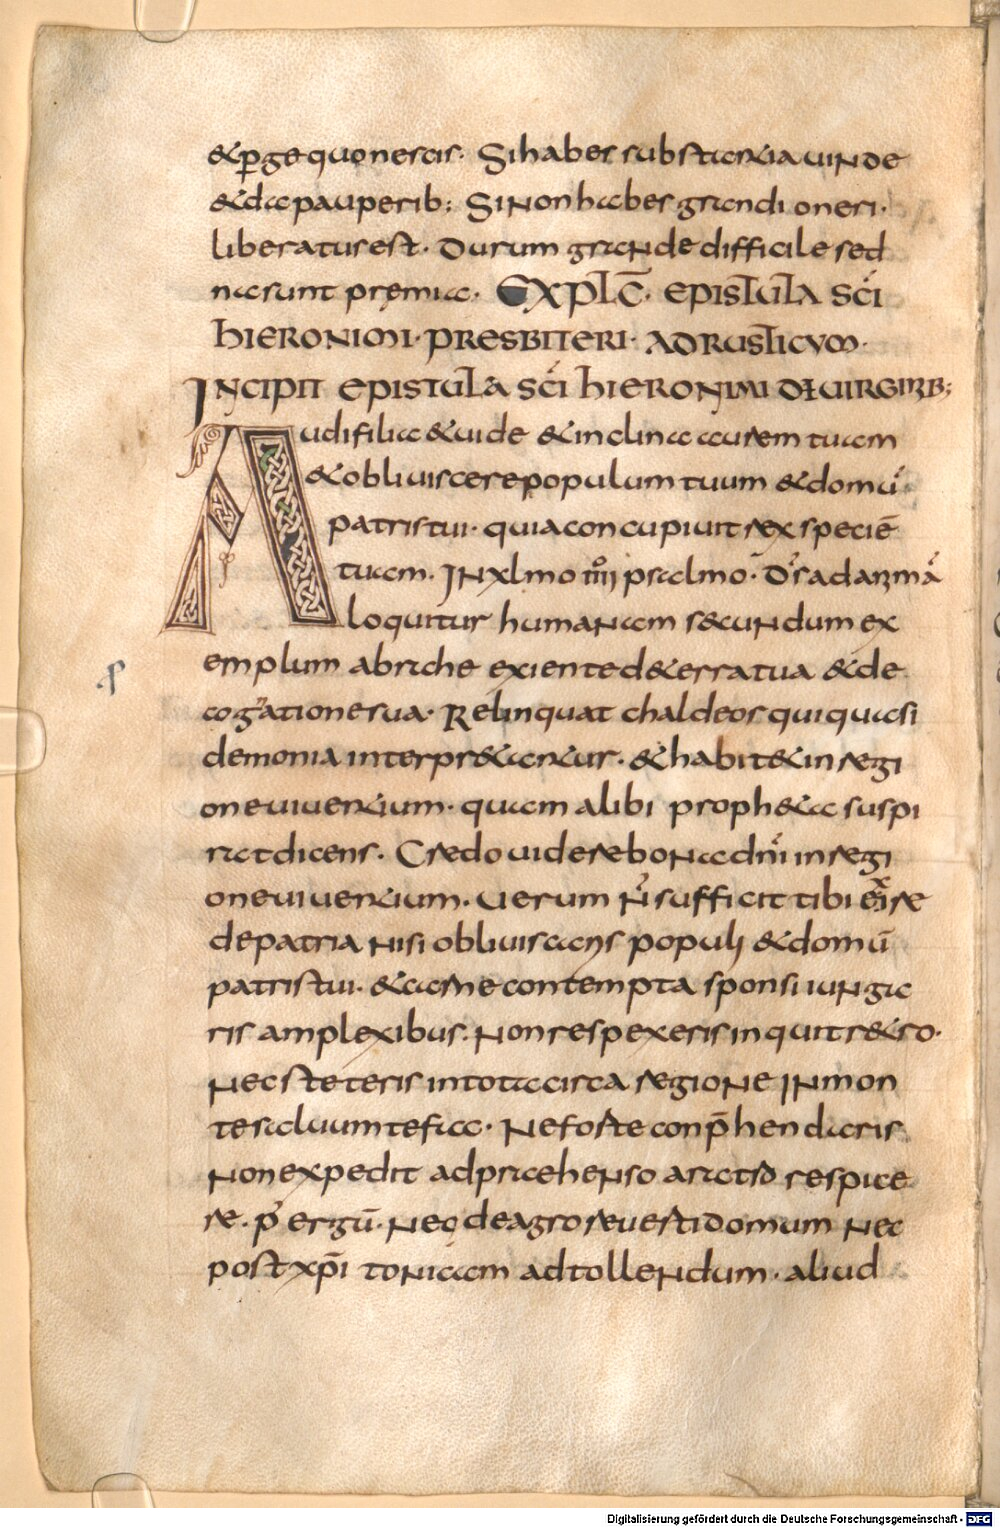 & ꝑge quo nescis. Si habes substantia uinde
& da pauperib: Si non habes grandi oneri.
liberatus est. Durum grande difficile sed
na sunt premia. EXPLC̄. EPISTULA SC̄I
HIERONIMI. PRESBITERI. AD RUSTICVM.
INCIPIT EPISTULA SC̄I HIERONIMI DE UIRGINIB;
Audi filia & uide & inclina aurem tuam
& obliuiscere populum tuum & domū
patris tui. quia concupiuit rex speciē
tuam. IN xlmo iiii psalmo. d's ad animā
loquitur humanam secundum ex
emplum abrahe exiente de terra tua & de
cognatione sua. Relinquat chaldeos qui quasi
demonia interpr&antur. & habit& in regi
one uiuentium. quam alibi proph&a suspi
rat dicens. Credo uidere bona dn̄i in regi
one uiuentium. Uerum n̄ sufficit tibi exire
de patria nisi obliuiscaris populi & domū
patris tui. & carne contempta sponsi iunga
ris amplexibus. Non respexeris inquit r&ro.
Nec steteris in tota circa regione IN mon
te saluum te fac. Ne forte conp̄hendaris
Non expedit adpraehenso aratro respice
re. p' ergū. Nec de agro reuerti domum Nec
post xp̄i tonicam ad tollendum. aliud
Digitalisierung gefördert durch die Deutsche Forschungsgemeinschaft - DFG